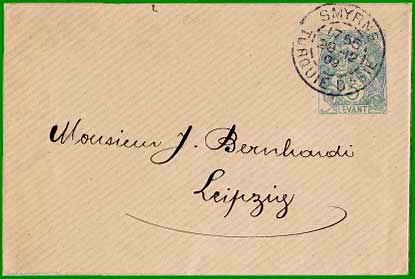 SMYRNE
TURQUIE D'ASIE
LEVANT
Monsieur J. Bernhardi
Leipzig